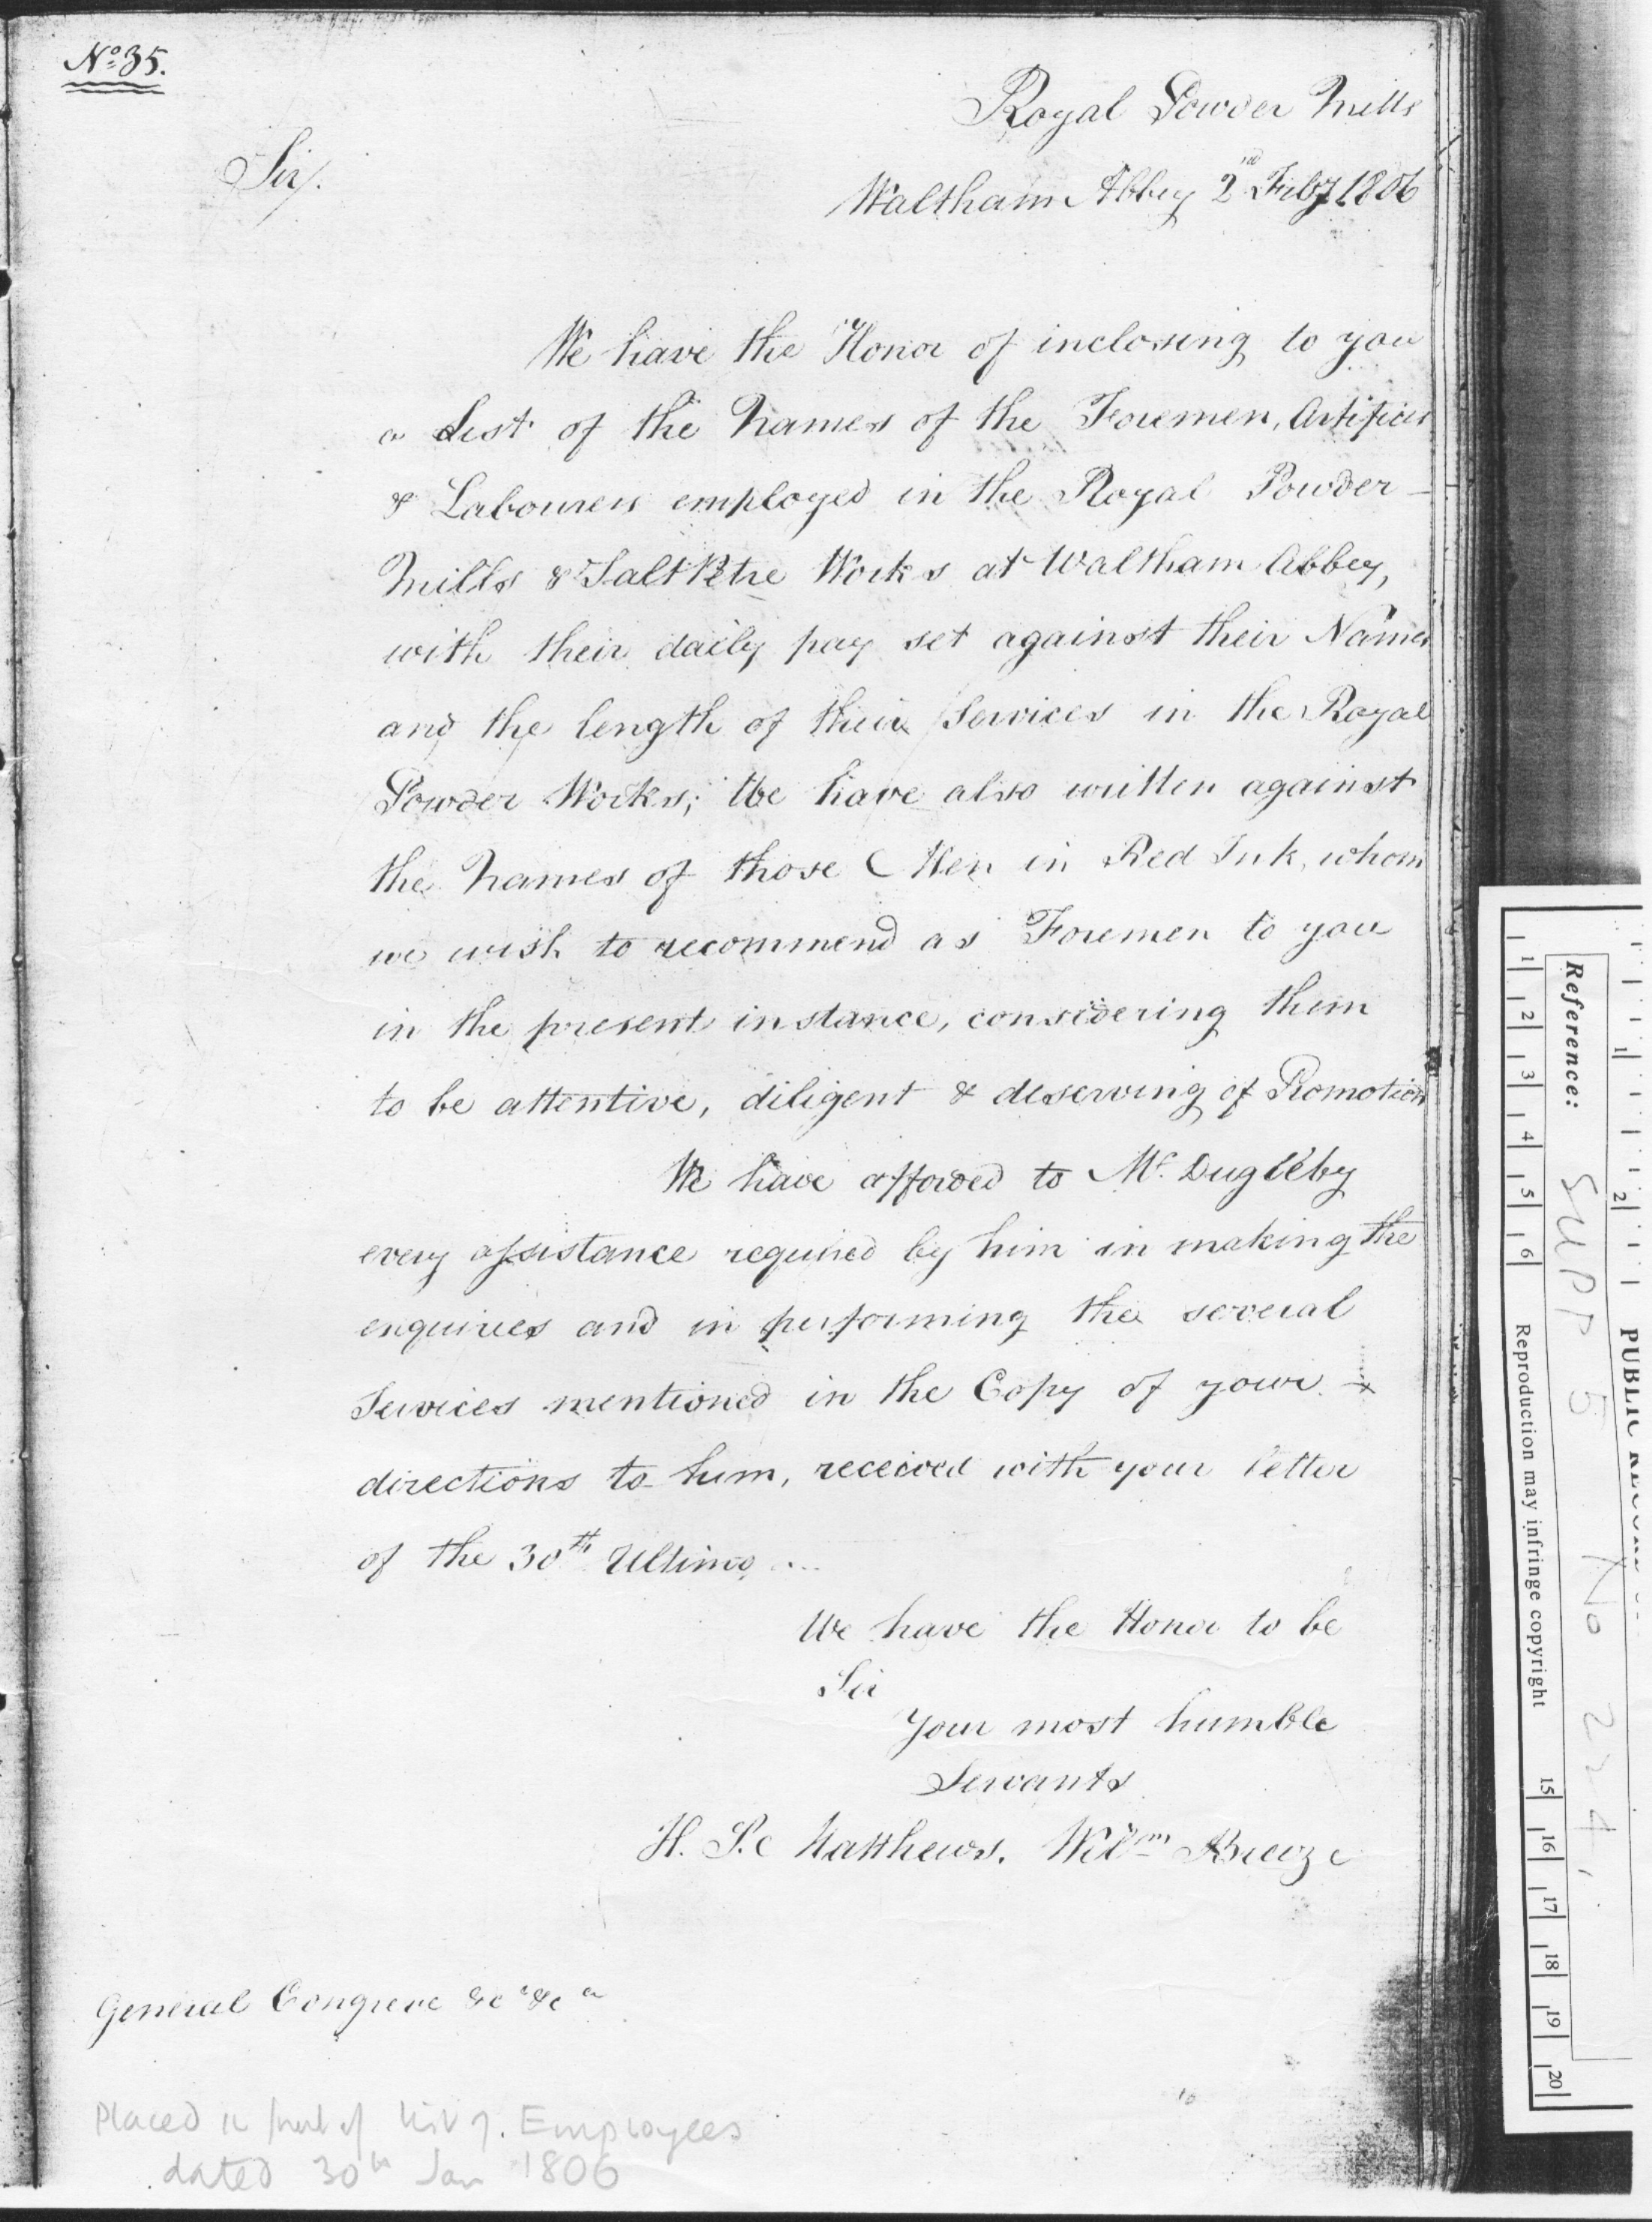 No. 35.
Royal Powder Mills
Sir/.
Waltham Abbey 2nd Feby 1806
We have the Honor of inclosing to you
a List of the Names of the Foremen, Artificers
& Labourers employed in the Royal Powder
Mills & SaltPetre Works at Waltham Abbey,
with their daily pay set against their Names
and the length of their Services in the Royal
Powder Works; We have also written against
the Names of those Men in Red Ink, whom
we wish to recommend as Foremen to you
in the present instance, considering them
to be attentive, diligent & deserving of Promotion
We have afforded to Mr. Dugleby
every assistance required by him in making the
enquiries and in performing the several
Services mentioned in the Copy of your
directions to him, received with your letter
of the 30th Ultimo
We have the Honor to be
Sir
Your most humble
Servants
H. S. Matthews. Willm Breeze
General Congreve &ca &ca
Placed in front of List of Employees
dated 30th Jan 1806
PUBLIC
Reference: SUPP 5 No 224
Reproduction may infringe copyright
1 2 3 4 5 6 15 16 17 18 19 20
1 2